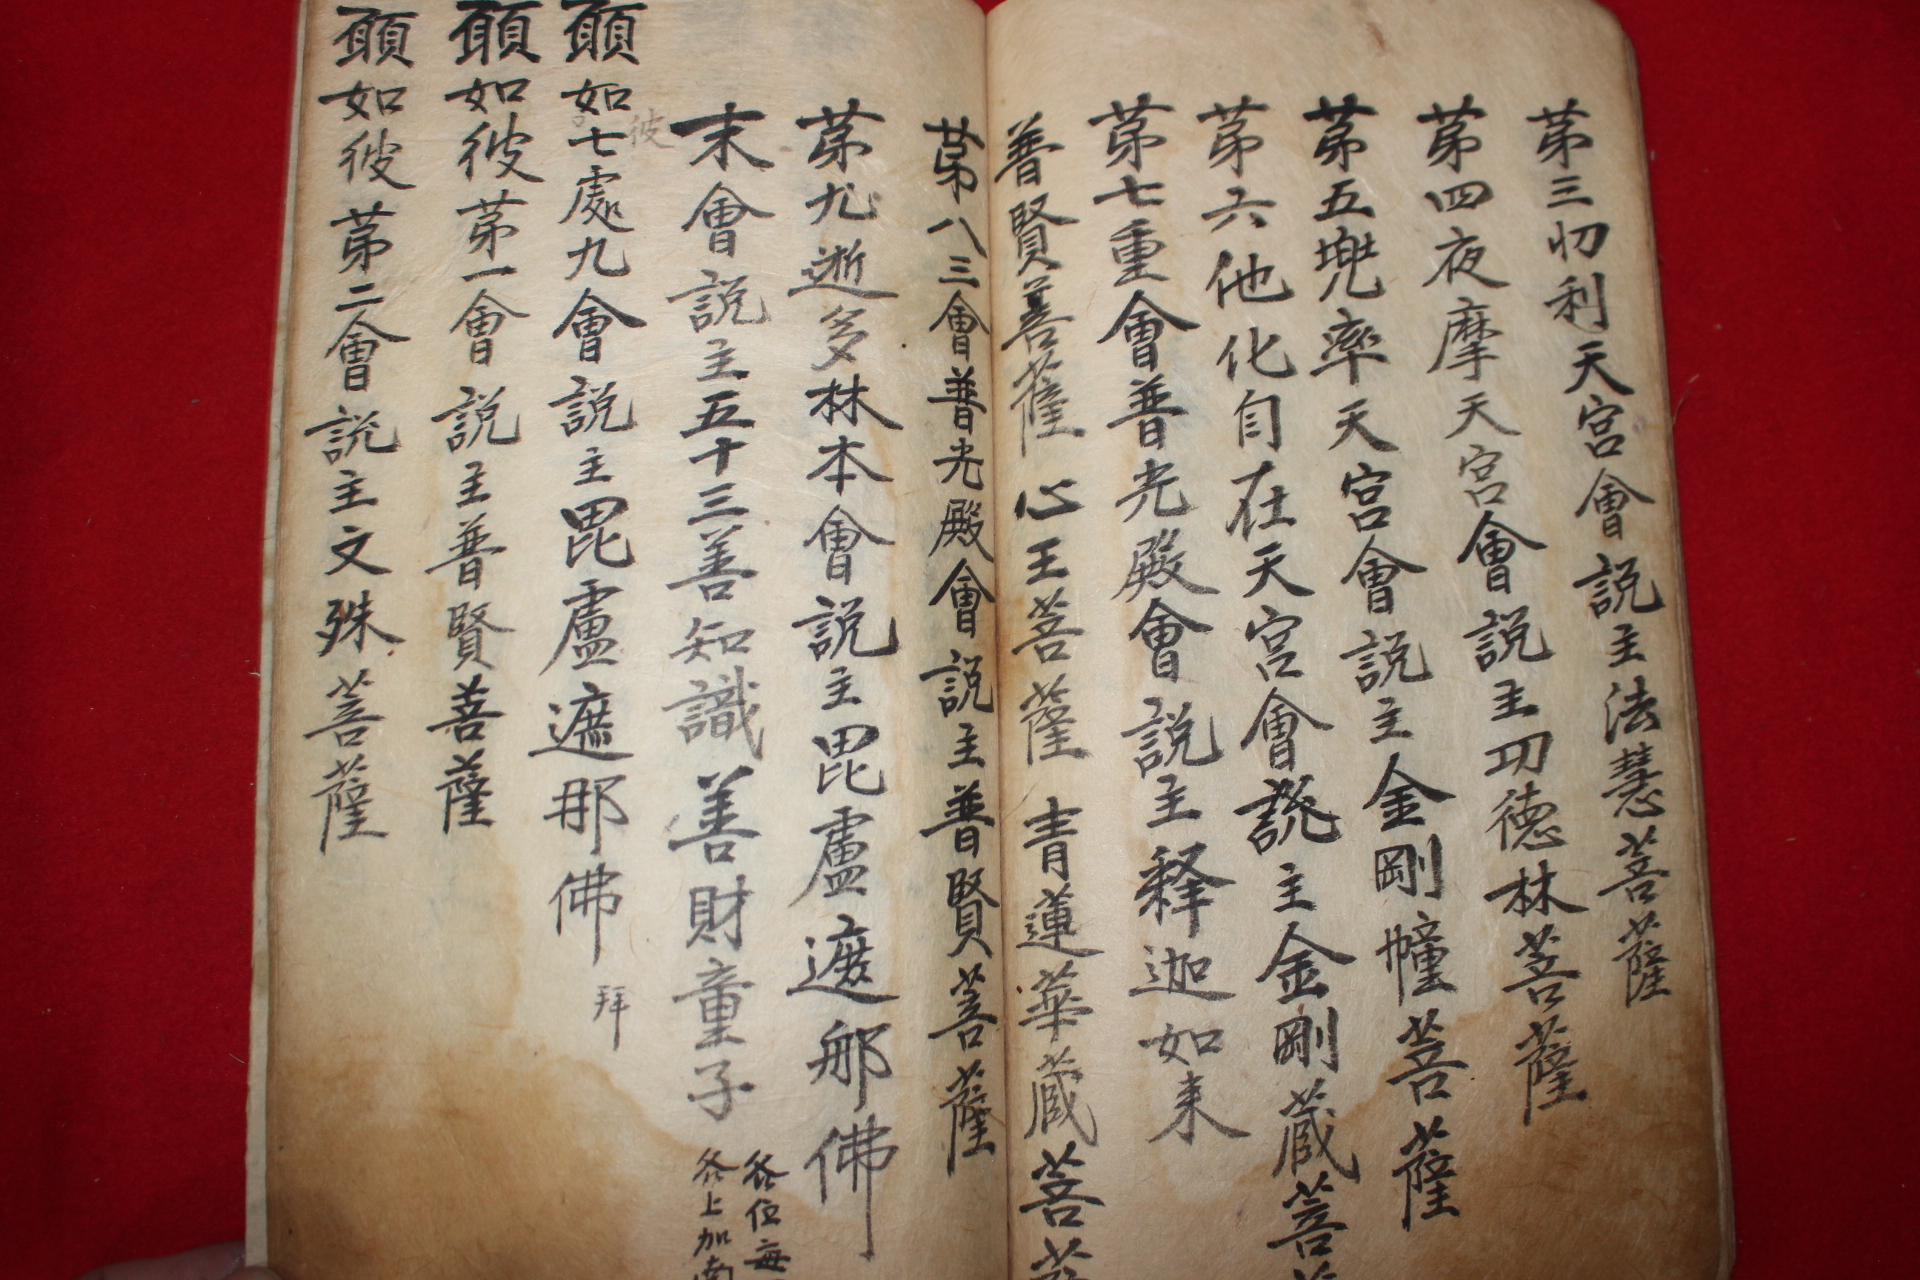 苐三忉利天宮會説主法慧菩薩
苐四夜摩天宮會説主功德林菩薩
苐五兜率天宮會説主金剛幢菩薩
苐六他化自在天宮會説主金剛蔵菩
苐七重會普光殿會説主釋迦如来
普賢菩薩 心王菩薩 青蓮華蔵菩
苐八三會普光殿會説主普賢菩薩
苐九逝多林本會説主毘盧遮那佛
末會説主五十三善知識善財童子
位每
上加南
彼
願如七處九會説主毘盧遮那佛
拜
願如彼苐一會説主普賢菩薩
願如彼苐二會説主文殊菩薩